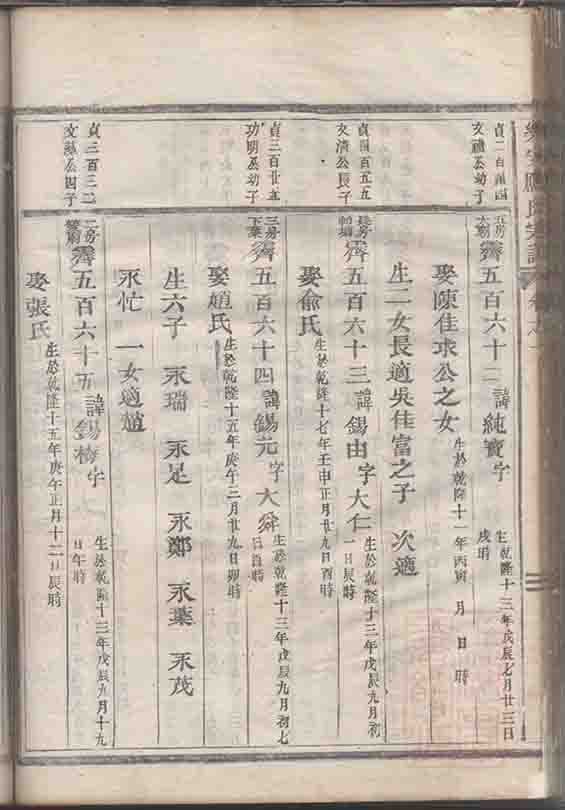 應氏宗譜
貞二百
文禮公幼子
霽五百六十二 諱純寶 字 生乾隆十三年戊辰七月廿三日
戌時
娶陳佳求公之女 生於乾隆十一年丙寅 月 日 時
生一女長適吳佳富之子 次適
貞四百五五
文清公長子
長房
霽五百六十三 諱錫由 字大仁 生於乾隆十三年戊辰九月初
一日辰時
娶俞氏 生於乾隆十七年壬申正月廿九日酉時
貞三百廿五
功明公幼子
三房
下葉
霽五百六十四 諱錫元 字大舜 生於乾隆十三年戊辰九月初七
日酉時
娶趙氏 生於乾隆十五年庚午三月廿九日卯時
生六子 永瑞 永足 永鄭 永葉 永茂
永忙 一女適趙
貞三百三二
公四子
二房
霽五百六十五 諱錫梅 字 生於乾隆十三年戊辰九月十九
日午時
娶張氏 生於乾隆十五年庚午正月十二日辰時